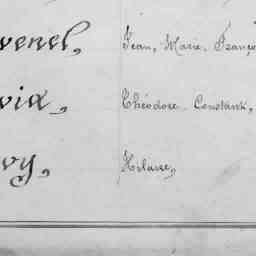 venel, Jean, Marie, Franço
vid, Théodore, Constant,
vy, Hilaire,